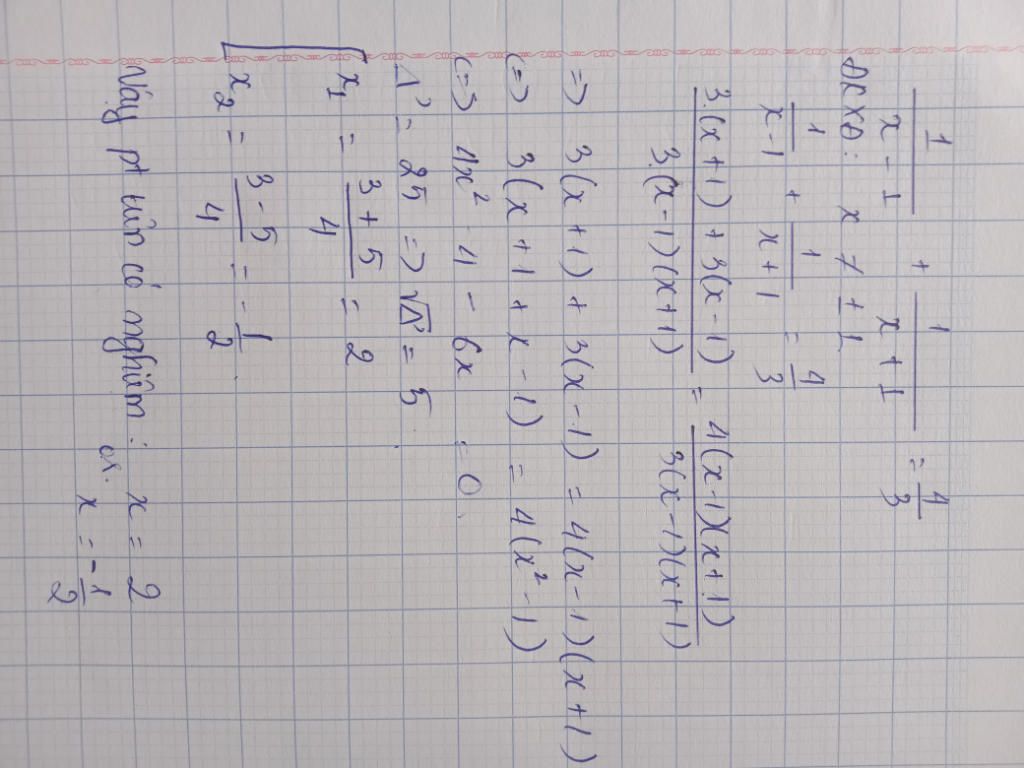 1/(x - 1) + 1/(x + 1) = 4/3
ĐKXĐ: x ≠ ± 1
1/(x - 1) + 1/(x + 1) = 4/3
(3.(x + 1) + 3(x - 1))/(3.(x - 1)(x + 1)) = (4(x - 1)(x + 1))/(3(x - 1)(x + 1))
=> 3(x + 1) + 3(x - 1) = 4(x - 1)(x + 1)
<=> 3(x + 1 + x - 1) = 4(x² - 1)
<=> 4x² - 4 - 6x = 0.
Δ' = 25 => √Δ' = 5
x₁ = (3 + 5)/4 = 2
x₂ = (3 - 5)/4 = -1/2
Vậy pt trên có nghiệm: x = 2
x = -1/2